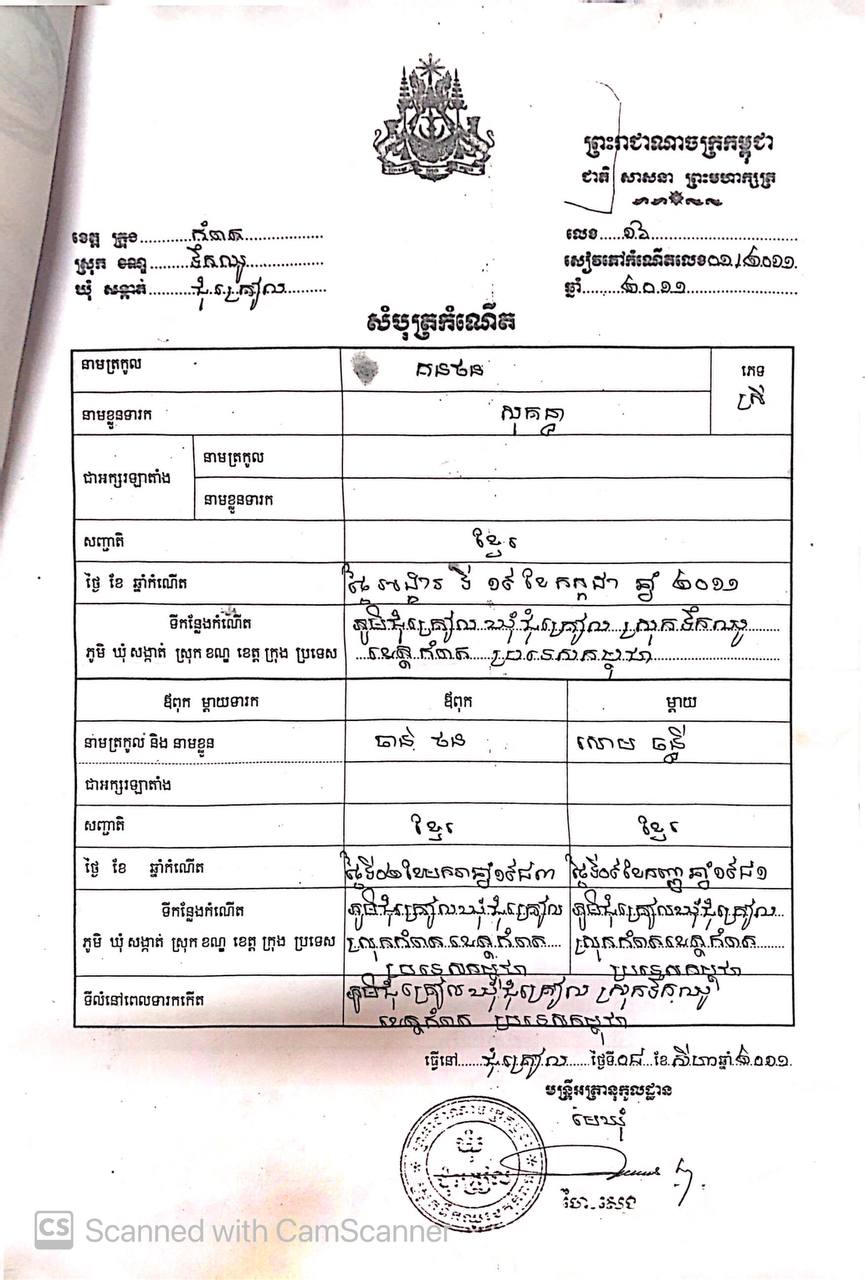 ព្រះរាជាណាចក្រកម្ពុជា
ជាតិ សាសនា ព្រះមហាក្សត្រ
ខេត្ត ក្រុង..........កំពត................
ស្រុក ខណ្ឌ........ទឹកឈូ..............
ឃុំ សង្កាត់........ជុំគ្រៀល.........
លេខ.........១៦..............................
សៀវភៅកំណើតលេខ០១/២០១១.
ឆ្នាំ..........២០១១.......................
សំបុត្រកំណើត
នាមត្រកូល
ភេទ
ស្រី
នាមខ្លួនទារក សុគន្ធា
ជាអក្សរឡាតាំង
នាមត្រកូល
នាមខ្លួនទារក
សញ្ជាតិ ខ្មែរ
ថ្ងៃ ខែ ឆ្នាំកំណើត ថ្ងៃ អង្គារ ទី ១៩ ខែ កក្កដា ឆ្នាំ ២០១១
ទីកន្លែងកំណើត
ភូមិ ឃុំ សង្កាត់ ស្រុក ខណ្ឌ ខេត្ត ក្រុង ប្រទេស
ភូមិជុំគ្រៀល ឃុំជុំគ្រៀល ស្រុកទឹកឈូ
ខេត្តកំពត ប្រទេសកម្ពុជា
ឪពុក ម្តាយទារក ឪពុក ម្តាយ
នាមត្រកូល និង នាមខ្លួន ចាន់ ថន សោម ចន្ធី
ជាអក្សរឡាតាំង
សញ្ជាតិ ខ្មែរ ខ្មែរ
ថ្ងៃ ខែ ឆ្នាំកំណើត ថ្ងៃទី០២ ខែមករា ឆ្នាំ១៩៨៣ ថ្ងៃទី០៩ ខែកញ្ញា ឆ្នាំ១៩៨១
ទីកន្លែងកំណើត
ភូមិ ឃុំ សង្កាត់ ស្រុក ខណ្ឌ ខេត្ត ក្រុង ប្រទេស
ភូមិជុំគ្រៀល ឃុំជុំគ្រៀល
ស្រុកកំពត ខេត្តកំពត
ប្រទេសកម្ពុជា
ភូមិជុំគ្រៀល ឃុំជុំគ្រៀល
ស្រុកកំពត ខេត្តកំពត
ប្រទេសកម្ពុជា
ទីលំនៅពេលទារកកើត ភូមិជុំគ្រៀល ឃុំជុំគ្រៀល ស្រុកទឹកឈូ
ខេត្តកំពត ប្រទេសកម្ពុជា
ធ្វើនៅ......ជុំគ្រៀល......ថ្ងៃទី០៨ ខែ.សីហាឆ្នាំ២០១១.
មន្ត្រីអត្រានុកូលដ្ឋាន
មេឃុំ
ឃុំ
ជុំគ្រៀល
CS Scanned with CamScanner